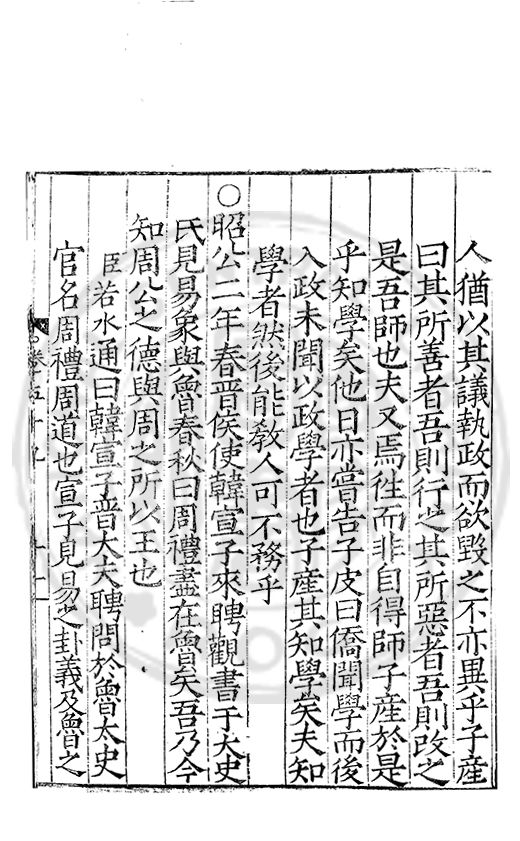 人猶以其議執政而欲毀之不亦異乎子産
曰其所善者吾則行之其所惡者吾則改之
是吾師也夫又焉徃而非自得師子産於是
乎知學矣他日亦嘗告子皮曰僑聞學而後
入政未聞以政學者也子產其知學矣夫知
學者然後能教人可不務乎
○昭公二年春晉侯使韓宣子來聘觀書于大史
氏見易象與魯春秋曰周禮盡在魯矣吾乃今
知周公之德與周之所以王也
臣若水通曰韓宣子晉大夫聘問於魯太史
官名周禮周道也宣子見易之卦義及魯之
卷五十九